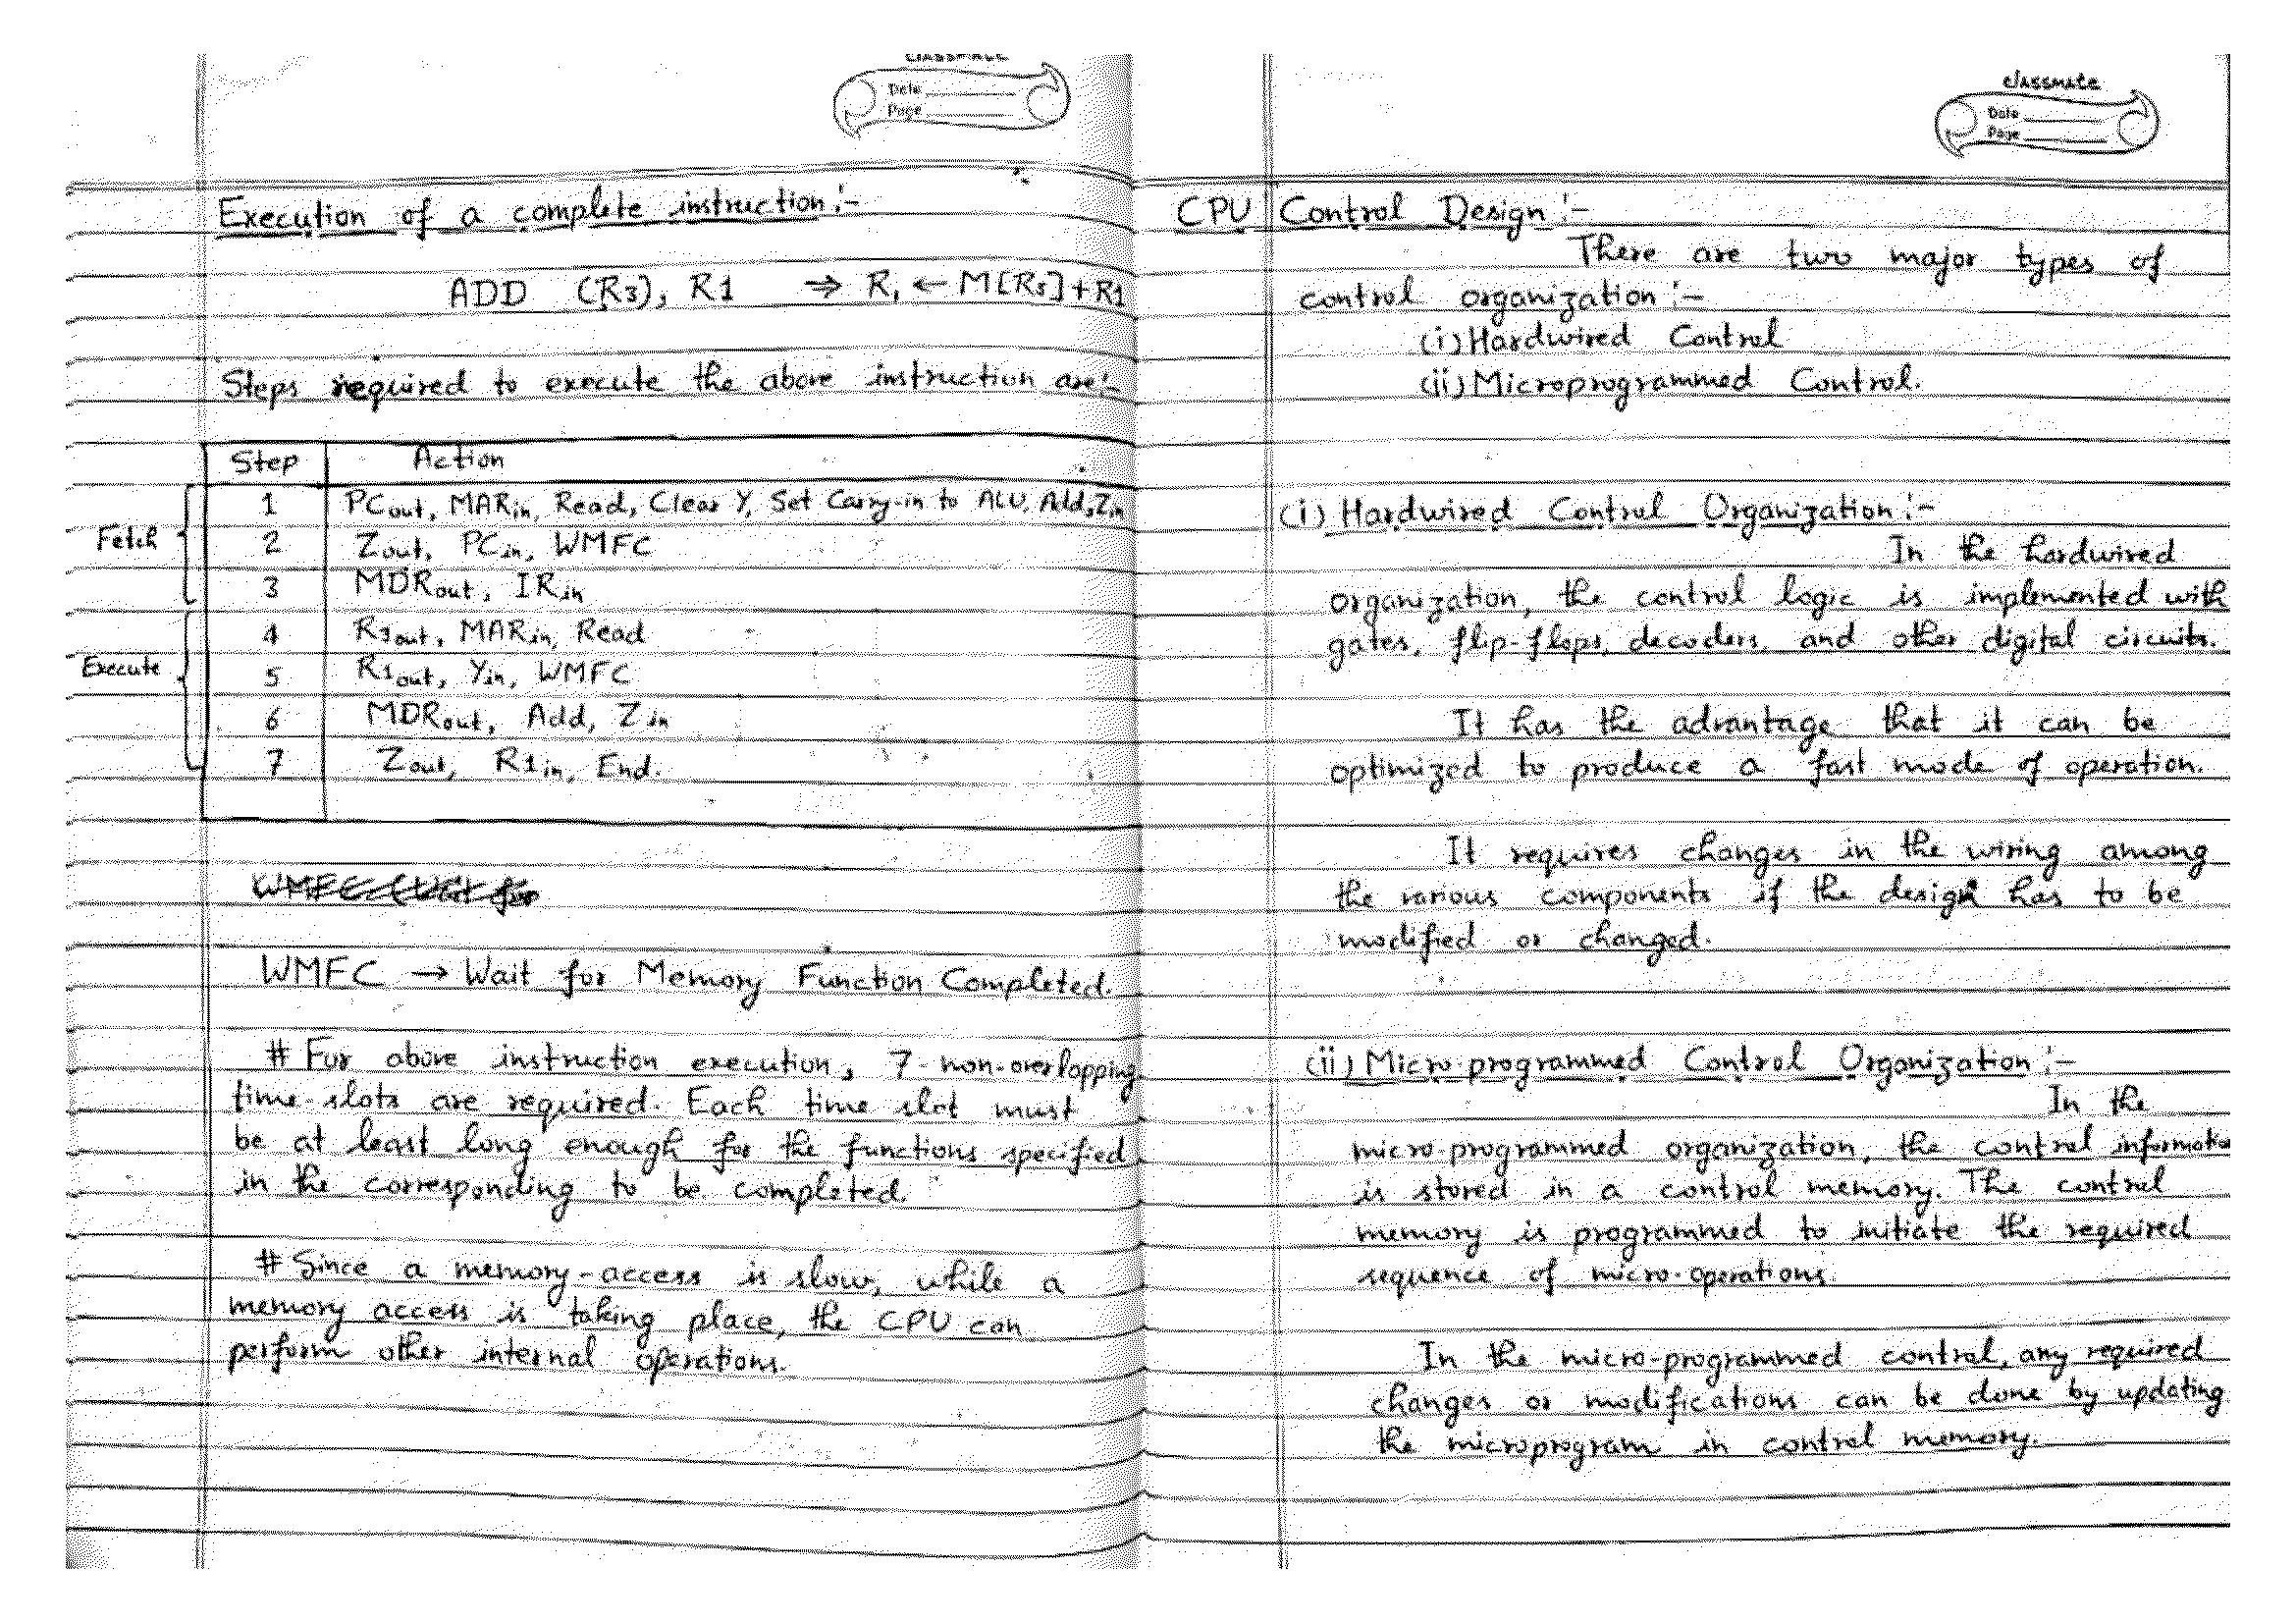 classmate
Date
Page
Execution of a complete instruction :-
ADD (R3), R1 ⇒ R1 ← M[R3] + R1
Steps required to execute the above instruction are:-
Step Action
Fetch
1 PCout, MARin, Read, Clear Y, Set Carry-in to ALU, Add, Zin
2 Zout, PCin, WMFC
3 MDRout, IRin
Execute
4 R3out, MARin, Read
5 R1out, Yin, WMFC
6 MDRout, Add, Zin
7 Zout, R1in, End.
WMFC → Wait for Memory Function Completed.
# For above instruction execution, 7-non-overlapping
time-slots are required. Each time slot must
be at least long enough for the functions specified
in the corresponding to be completed.
# Since a memory-access is slow, while a
memory access is taking place, the CPU can
perform other internal operations.
classmate
Date
Page
CPU Control Design :-
There are two major types of
control organization :-
(i) Hardwired Control
(ii) Microprogrammed Control.
(i) Hardwired Control Organization :-
In the hardwired
organization, the control logic is implemented with
gates, flip-flops, decoders, and other digital circuits.
It has the advantage that it can be
optimized to produce a fast mode of operation.
It requires changes in the wiring among
the various components if the design has to be
modified or changed.
(ii) Micro-programmed Control Organization :-
In the
micro-programmed organization, the control informatio
is stored in a control memory. The control
memory is programmed to initiate the required
sequence of micro-operations.
In the micro-programmed control, any required
changes or modifications can be done by updating
the microprogram in control memory.